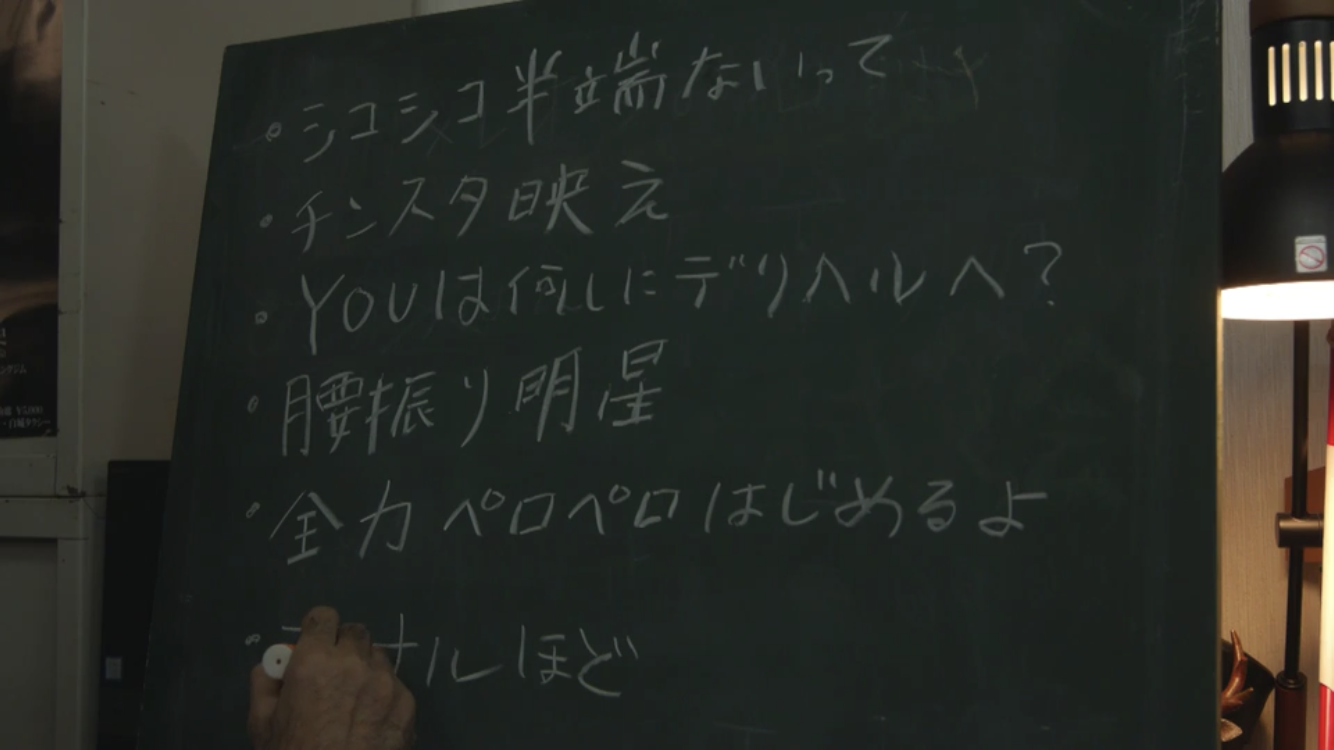 ・シコシコ半端ないって
・チンスタ映え
・YOUは何しにデリヘルへ?
・腰振り明星
・全力ペロペロはじめるよ
・ナルほど
ングジム
¥5,000